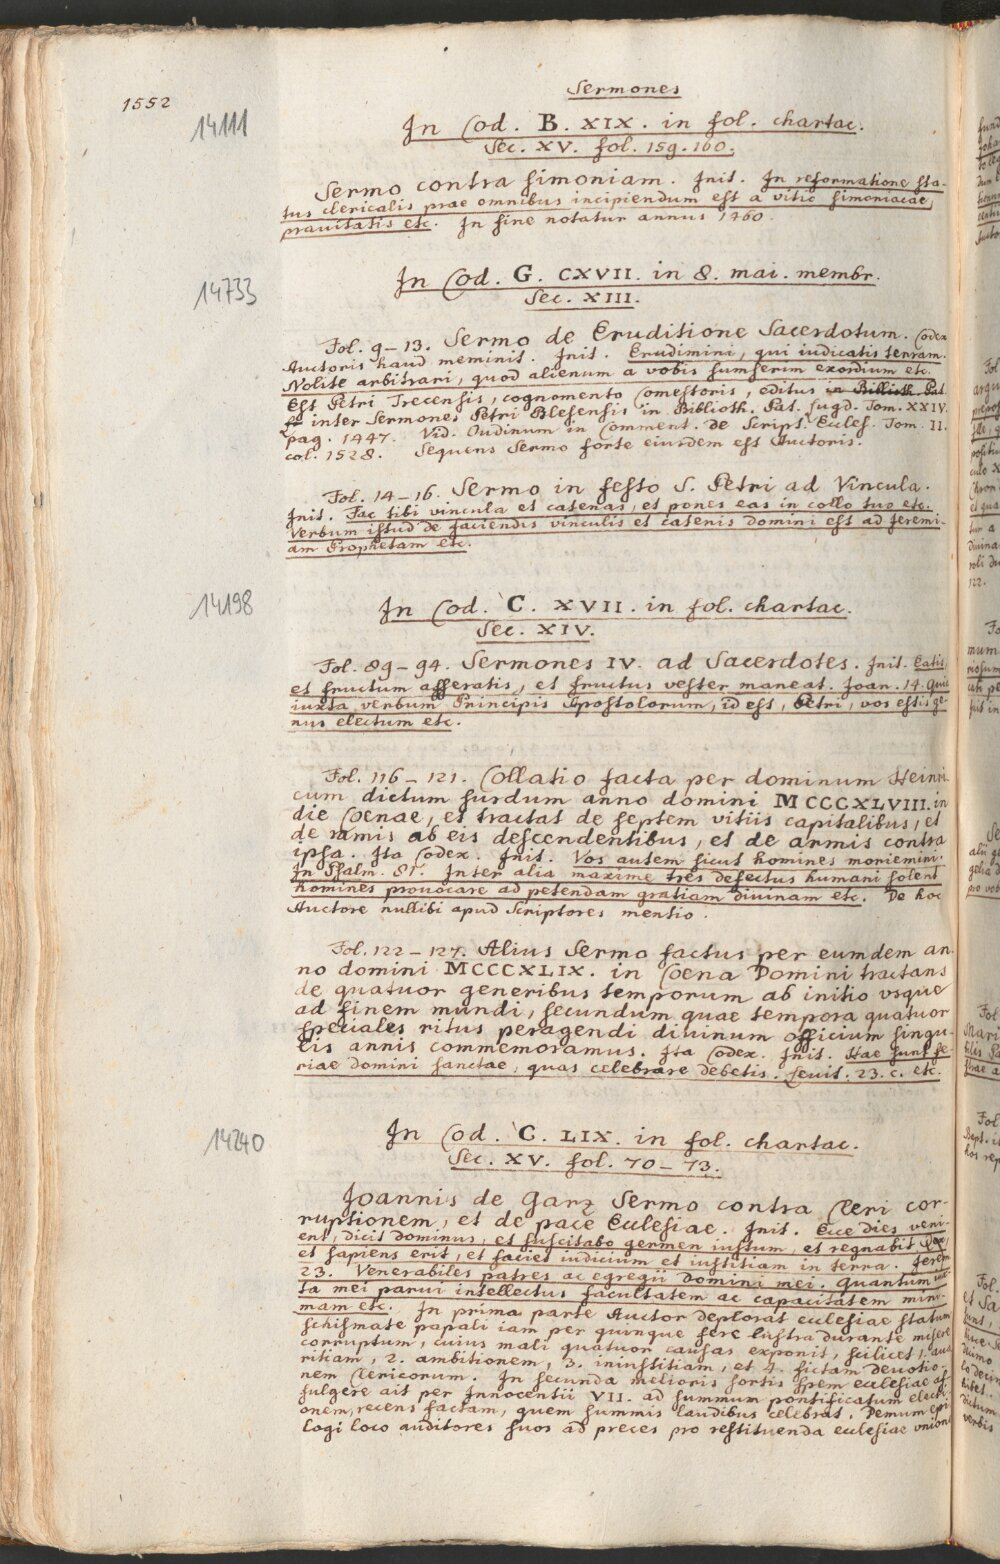 Sermones
1552
14111
In Cod. B. XIX. in fol. chartac.
Sec. XV. fol. 159. 160.
Sermo contra simoniam. Init. In reformatione sta-
tus clericalis prae omnibus incipiendum est a vitio simoniacae
prauitatis etc. In fine notatur annus 1460.
14733
In Cod. G. CXVII. in 8. mai. membr.
Sec. XIII.
Fol. 9–13. Sermo de Eruditione Sacerdotum. Codex
Auctoris haud meminit. Init. Erudimini, qui iudicatis terram.
Nolite arbitrari, quod alienum a vobis sumserim exordium etc.
Est Petri Trecensis, cognomento Comestoris, editus in Biblioth. Pat.
inter Sermones Petri Blesensis in Biblioth. Pat. Lugd. Tom. XXIV.
pag. 1447. Vid. Oudinum in Comment. de Script. Eccles. Tom. II.
col. 1528. Sequens Sermo forte eiusdem est Auctoris.
Fol. 14–16. Sermo in festo S. Petri ad Vincula.
Init. Fac tibi vincula et catenas, et pones eas in collo tuo etc.
Verbum istud de faciendis vinculis et catenis domini est ad Jeremi-
am Prophetam etc.
14198
In Cod. C. XVII. in fol. chartac.
Sec. XIV.
Fol. 89–94. Sermones IV. ad Sacerdotes. Init. Eatis,
et fructum afferatis, et fructus vester maneat. Joan. 14. Quia
iuxta verbum Principis Apostolorum, id est, Petri, vos estis ge-
nus electum etc.
Fol. 116–121. Collatio facta per dominum Heinri-
cum dictum surdum anno domini MCCCXLVIII. in
die Coenae, et tractat de septem vitiis capitalibus, et
de ramis ab eis descendentibus, et de armis contra
ipsa. Ita Codex. Init. Vos autem sicut homines moriemini.
In Psalm. 81. Inter alia maxime tres defectus humani solent
homines prouocare ad petendam gratiam diuinam etc. De hoc
Auctore nullibi apud Scriptores mentio.
Fol. 122–127. Alius Sermo factus per eumdem an-
no domini MCCCXLIX. in Coena Domini tractans
de quatuor generibus temporum ab initio vsque
ad finem mundi, secundum quae tempora quatuor
speciales ritus peragendi diuinum officium singu-
lis annis commemoramus. Ita Codex. Init. Hae sunt fe-
riae domini sanctae, quas celebrare debetis. Leuit. 23. c. etc.
14240
In Cod. C. LIX. in fol. chartac.
Sec. XV. fol. 70–73.
Joannis de Garz Sermo contra Cleri cor-
ruptionem, et de pace Ecclesiae. Init. Ecce dies veni-
ent, dicit dominus, et suscitabo germen iustum, et regnabit Rex,
et sapiens erit, et faciet iudicium et iustitiam in terra. Jerem.
23. Venerabiles patres ac egregii domini mei. Quantum iux-
ta mei parui intellectus facultatem ac capacitatem mini-
mam etc. In prima parte Auctor deplorat ecclesiae statum
schismate papali iam per quinque fere lustra durante misere
corruptum, cuius mali quatuor causas exponit, scilicet 1. aua-
ritiam, 2. ambitionem, 3. iniustitiam, et 4. fictam deuotio-
nem Clericorum. In secunda melioris sortis spem ecclesiae af-
fulgere ait per Innocentii VII. ad summum pontificatum electi-
onem, recens factam, quem summis laudibus celebrat. Demum epi-
logi loco auditores suos ad preces pro restituenda ecclesiae unione